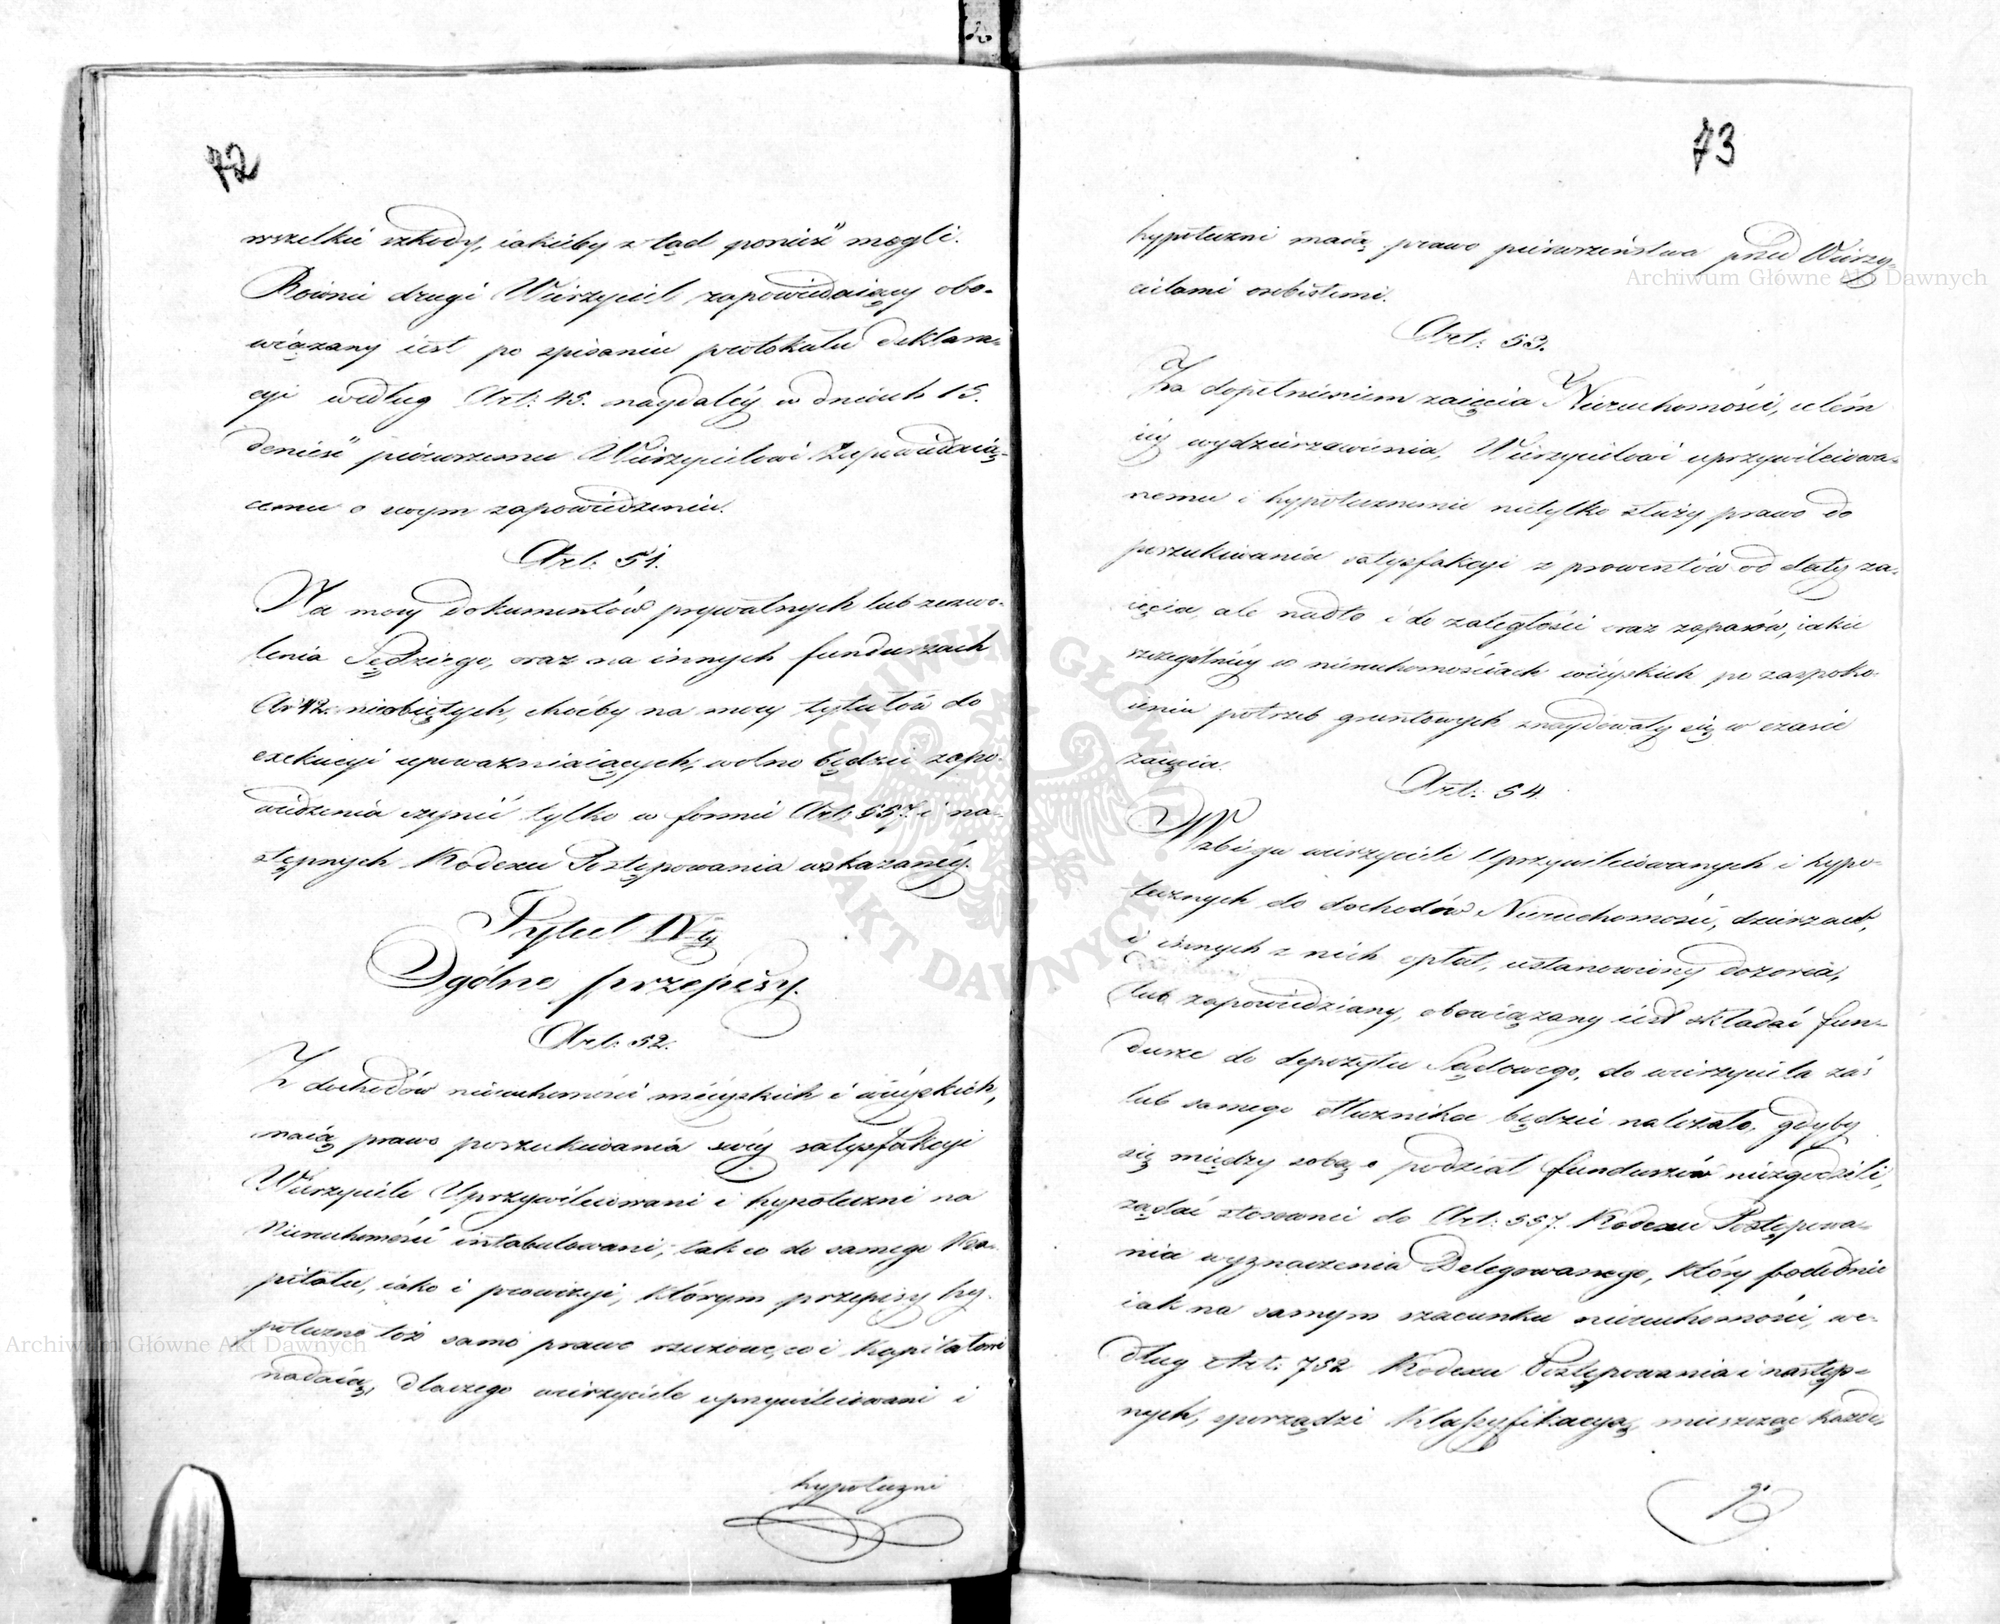 72
wszelkie szkody, iakieby z tąd ponieść mogli.
Rownie drugi Wierzyciel zapowiedaiący obo-
wiązany iest po spisaniu protokułu deklara-
cyi według Art: 45. naydaléy w dniach 15.
donieść pierwszemu Wierzycielowi Zapowiedzią-
cemu o swym zapowiedzeniu.
Art: 51.
Na mocy dokumentów prywatnych lub zezwo-
lenia Sędziego, oraz na innych funduszach
Ar 42. nieobiętych, choćby na mocy tytułów do
exekucyi upoważniaiących, wolno będzie zapo-
wiedzenia czynić tylko w formie Art: 557. i na-
stępnych Kodexu Postępowania wskazanéy.
Tytuł IV-ty
Ogólne przepisy.
Art: 52.
Z dochodów nieruchomości mieyskich i wieyskich,
maią prawo poszukiwania swéy satysfakcyi
Wierzyciele Uprzywileiowani i hypoteczni na
Nieruchomości intabulowani, tak co do samego Ka-
pitału, iako i prowizyi, którym przepisy hy-
poteczne toż samo prawo rzeczowe, co i Kapitałowi
nadaią, dlaczego wierzyciele uprzywileiowani i
hypoteczni
73
hypoteczni maią prawo pierwszeństwa przed Wierzy-
cielami osobistemi.
Art: 53.
Za dopełnieniem zaięcia Nieruchomości, celem
iéy wydzierzawienia, Wierzycielowi uprzywileiowa-
nemu i hypotecznemu nietylko służy prawo do
poszukiwania satysfakcyi z prowentów od daty za-
ięcia, ale nadto i do zaległości oraz zapasów, iakie
szczególniéy w nieruchomościach wieyskich po zaspoko-
ieniu potrzeb gruntowych znaydowały się w czasie
zaięcia.
Art: 54.
W zbiegu wierzycieli Uprzywileiowanych i hypo-
tecznych do dochodów Nieruchomości, dzierzaw,
i innych z nich opłat, ustanowiony dozorca,
lub zapowiedziany, obowiązany iest składać fun-
dusze do depozytu Sądowego, do wierzyciela zaś
lub samego dłużnika będzie należało, gdyby
się między sobą o podział funduszów niezgodzili,
żądać stosownie do Art: 557. Kodexu Postępowa-
nia wyznaczenia Delegowanego, który podobnie
iak na samym szacunku nieruchomości, we-
dług Art: 752 Kodexu Postępowania i następ-
nych, sporządzi Klassyfikacyą, mieszcząc każde-